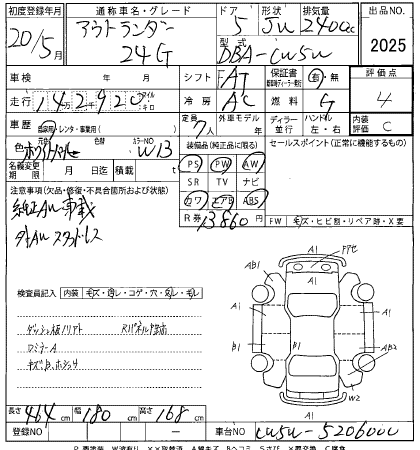 初度登録年月 通称車名・グレード ドア 形状 排気量 出品NO.
20/5月 アウトランダー 24G 5 5W 2400cc 2025
型式 DBA-CW5W
車検 年 月 シフト FAT 保証書 有・無 評価点 4
走行 142920 マイル キロ 冷房 AC 燃料 G
車歴 自家用・レンタ・事業用( ) 定員 7人 外車モデル ディーラー 並行 ハンドル 左・右 内装評価 C
色 ホワイトパール 色替 カラーNO W13 装備品(純正品に限る) セールスポイント(正常に機能するもの)
名義変更期限 月 日 積載 t PS PW AW
SR TV ナビ
注意事項(欠品・修復・不具合箇所および状態) カワ エアB ABS
純正AW車載 R券 13860円 FW キズ・ヒビ割・リペア跡・X要
外AW スタッドレス
A1
AB1
A1
A1
B1
B1
AB2
A1
W2
A1
検査員記入 内装 キズ・スレ・コゲ・穴・久レ・モレ
ダッシュ板ノリアト
ロミラーA
長さ 464cm 幅 180cm 高さ 168cm
登録NO - 車台NO CW5W-5206000